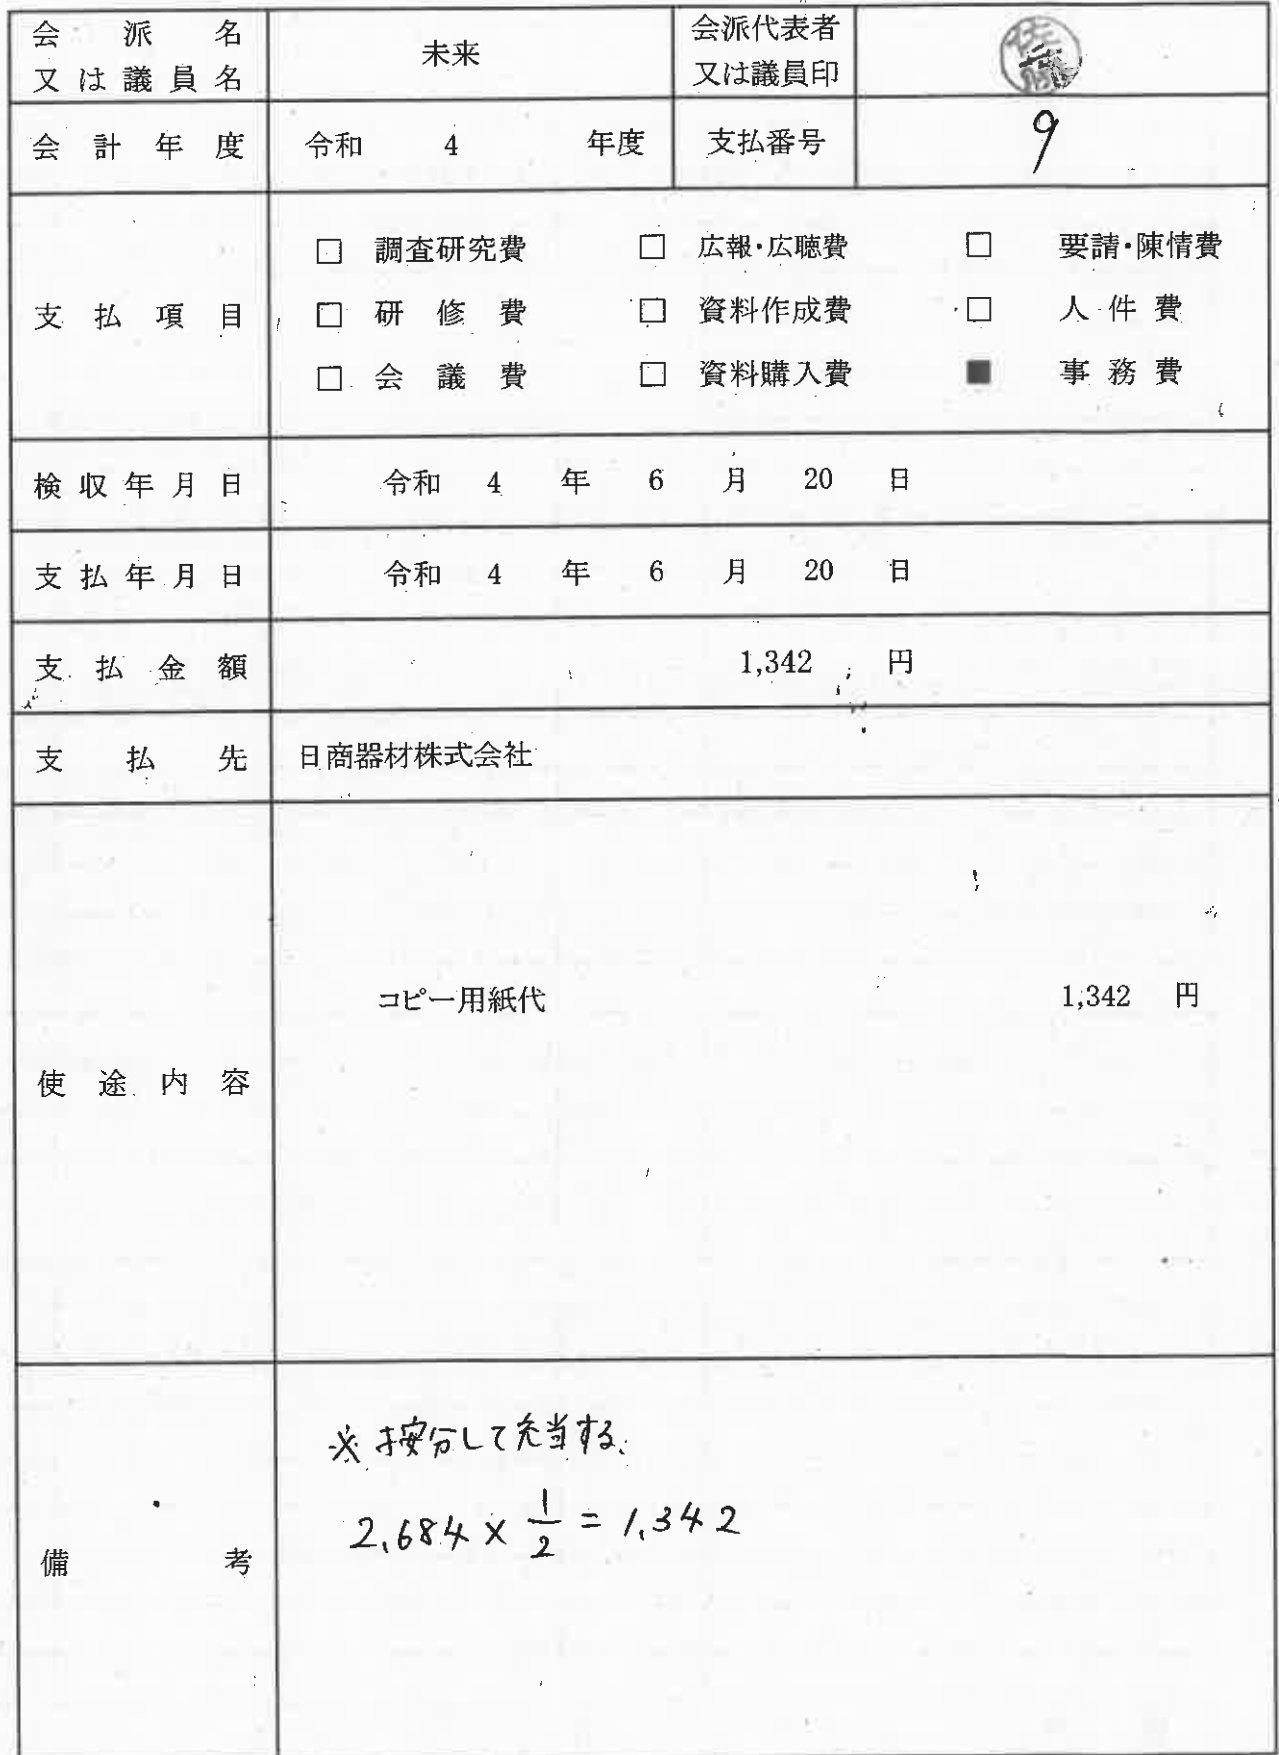 会派名 未来 会派代表者
又は議員名 又は議員印
会計年度 令和 4 年度 支払番号 9
□ 調査研究費 □ 広報・広聴費 □ 要請・陳情費
支払項目 □ 研修費 □ 資料作成費 □ 人件費
□ 会議費 □ 資料購入費 ■ 事務費
検収年月日 令和 4 年 6 月 20 日
支払年月日 令和 4 年 6 月 20 日
支払金額 1,342 円
支払先 日商器材株式会社
コピー用紙代 1,342 円
使途内容
※按分して充当する。
2,684 × 1/2 = 1,342
備考